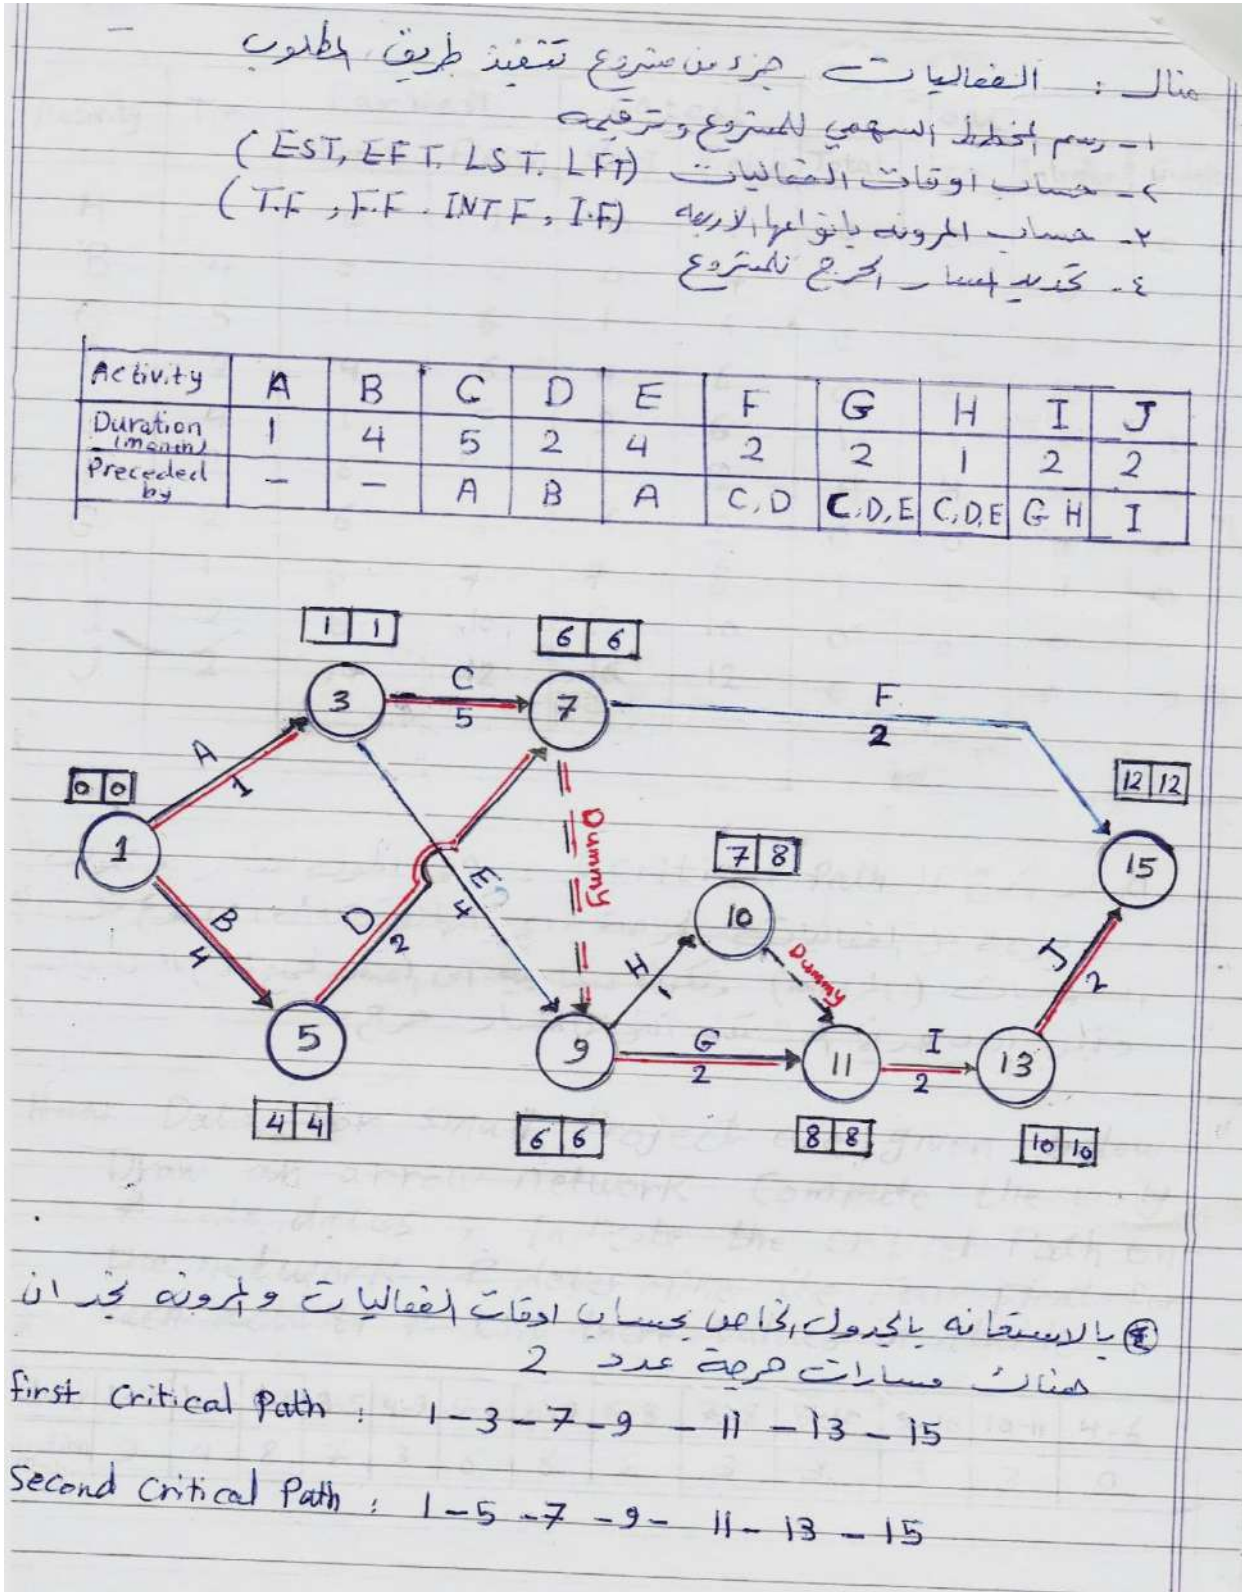 مثال : الفعاليات جزء من مشروع تنفيذ طريق المطلوب
١- رسم المخطط السهمي للمشروع وترقيمه
٢- حساب اوقات الفعاليات (EST, EFT. LST. LFT)
٣- حساب المرونه بانواعها الاربعه (T.F , F.F . INTF , I.F)
٤- تحديد المسار الحرج للمشروع
Activity A B C D E F G H I J
Duration (month) 1 4 5 2 4 2 2 1 2 2
Preceded by - - A B A C,D C,D,E C,D,E G H I
1 1
6 6
C
5
3
7
F
2
A
1
0 0
12 12
1
Dummy
7 8
15
E
4
B
4
D
2
10
H
1
Dummy
J
2
5
9
G
2
11
I
2
13
4 4
6 6
8 8
10 10
٤ بالاستعانه بالجدول الخاص بحساب اوقات الفعاليات والمرونه نجد ان
هناك مسارات حرجة عدد 2
first Critical Path : 1-3-7-9-11-13-15
Second Critical Path : 1-5-7-9-11-13-15